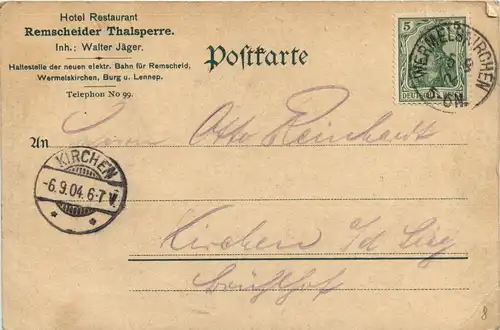 Hotel Restaurant
Remscheider Thalsperre.
Inh.: Walter Jäger.
Haltestelle der neuen elektr. Bahn für Remscheid,
Wermelskirchen, Burg u. Lennep.
Telephon No 99.
Postkarte
5
WERMELSKIRCHEN
DEUTSCHES
An
Herrn Otto Reinhardt
KIRCHEN
-6.9.04.6-7V.
Kirchen a/d Sieg
Brühlhof
8